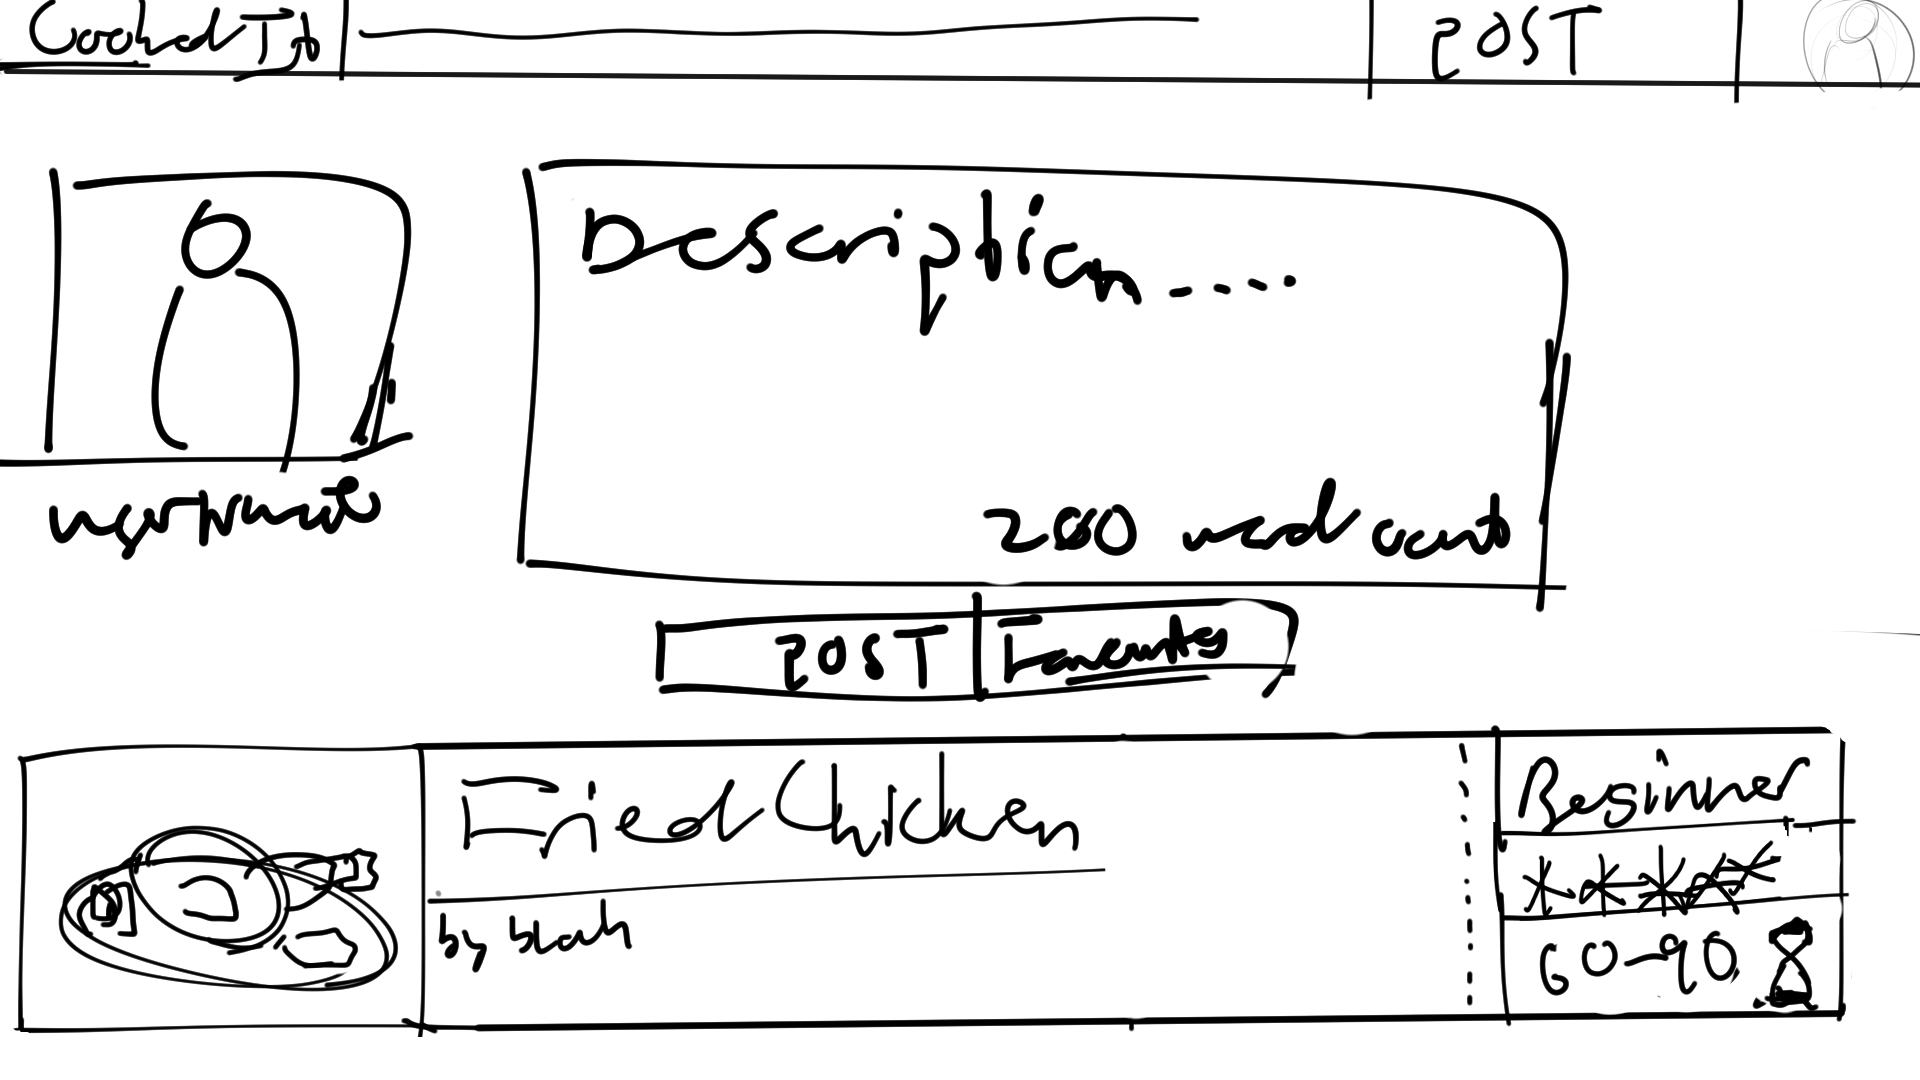 CookedIt
POST
Description.....
username
200 word count
POST
Favourites
Fried Chicken
by blah
Beginner
60-90